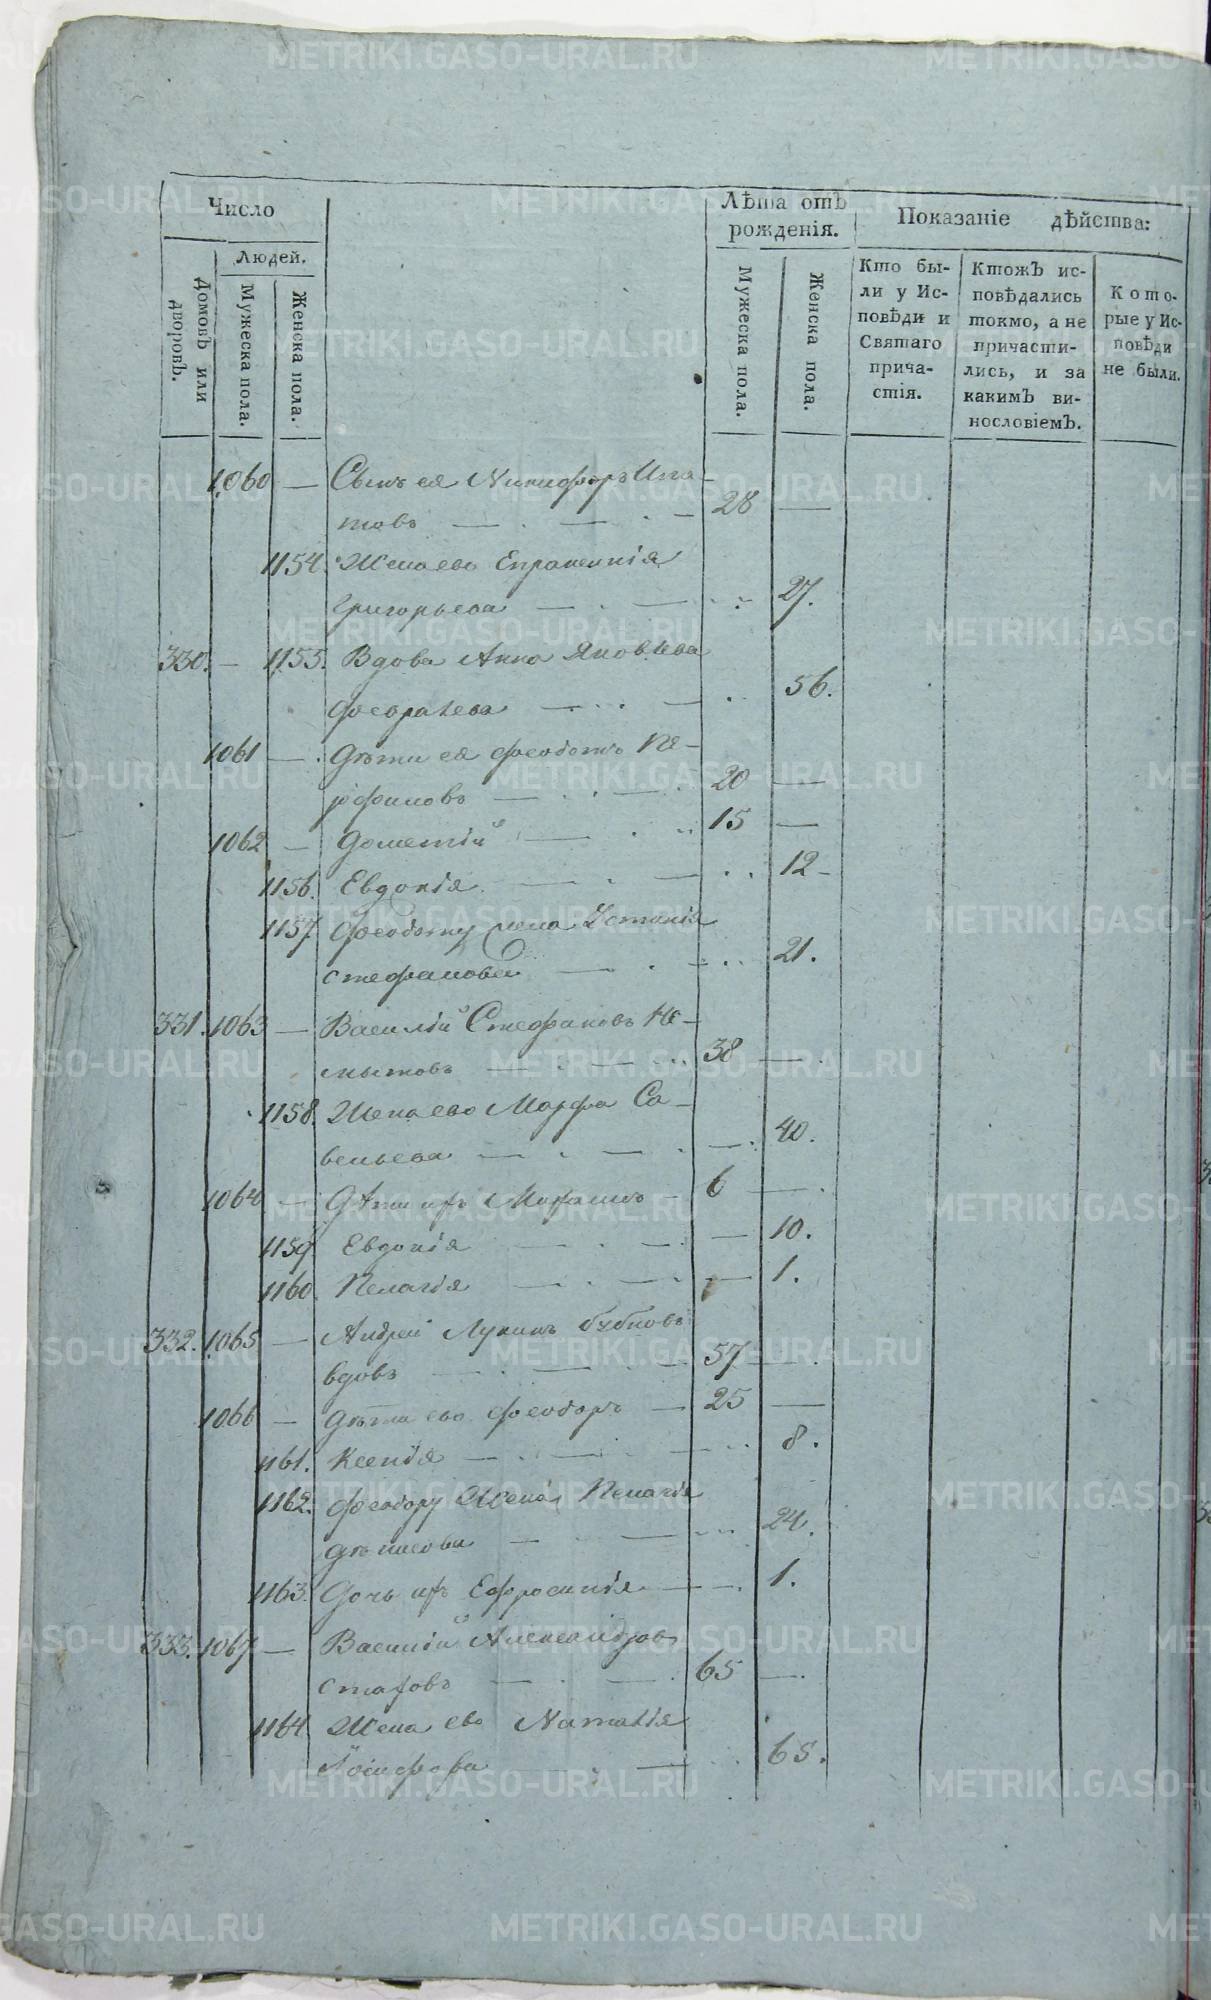 Число
Лѣта отъ рожденія.
Показаніе дѣйства:
Домовъ или дворовъ.
Людей.
Мужеска пола.
Женска пола.
Мужеска пола.
Женска пола.
Кто были у Исповѣди и Святаго причастія.
Ктожъ исповѣдались токмо, а не причастились, и за какимъ винословіемъ.
Которые у Исповѣди не были.
1060 — Сынъ ея Никифоръ Ипа-
товъ — 28 —
1154. Жена ево Епраксинія
Григорьева — 27.
330. — 1155. Вдова Анна Яковлева
— 56.
1061 — Дѣти ея Феодотъ Пе-
рфиловъ — 20 —
1062 — Дометій — 15 —
1156. Евдокія — 12 —
1157 Феодоту жена Устинія
стефанова — 21.
331. 1063 — Василій Стефановъ Не-
мытовъ — 38 —
1158. Жена ево Марфа Са-
вельева — 40.
1064 — Дѣти ихъ — 6 —
1159. Евдокія — 10.
1160. Пелагія — 1.
332. 1065 — Андрей Лукинъ бубновъ
вдовъ — 57 —
1066 — Дѣти ево Феодоръ — 25 —
1161. Ксенія — 8.
1162. Феодору Жена Пелагія
— 24.
1163. Дочь ихъ Ефросинія — 1.
333. 1067 — Василій Александровъ
— 65 —
1164 Жена ево Наталія
Іосифова — 65.
METRIKI.GASO-URAL.RU